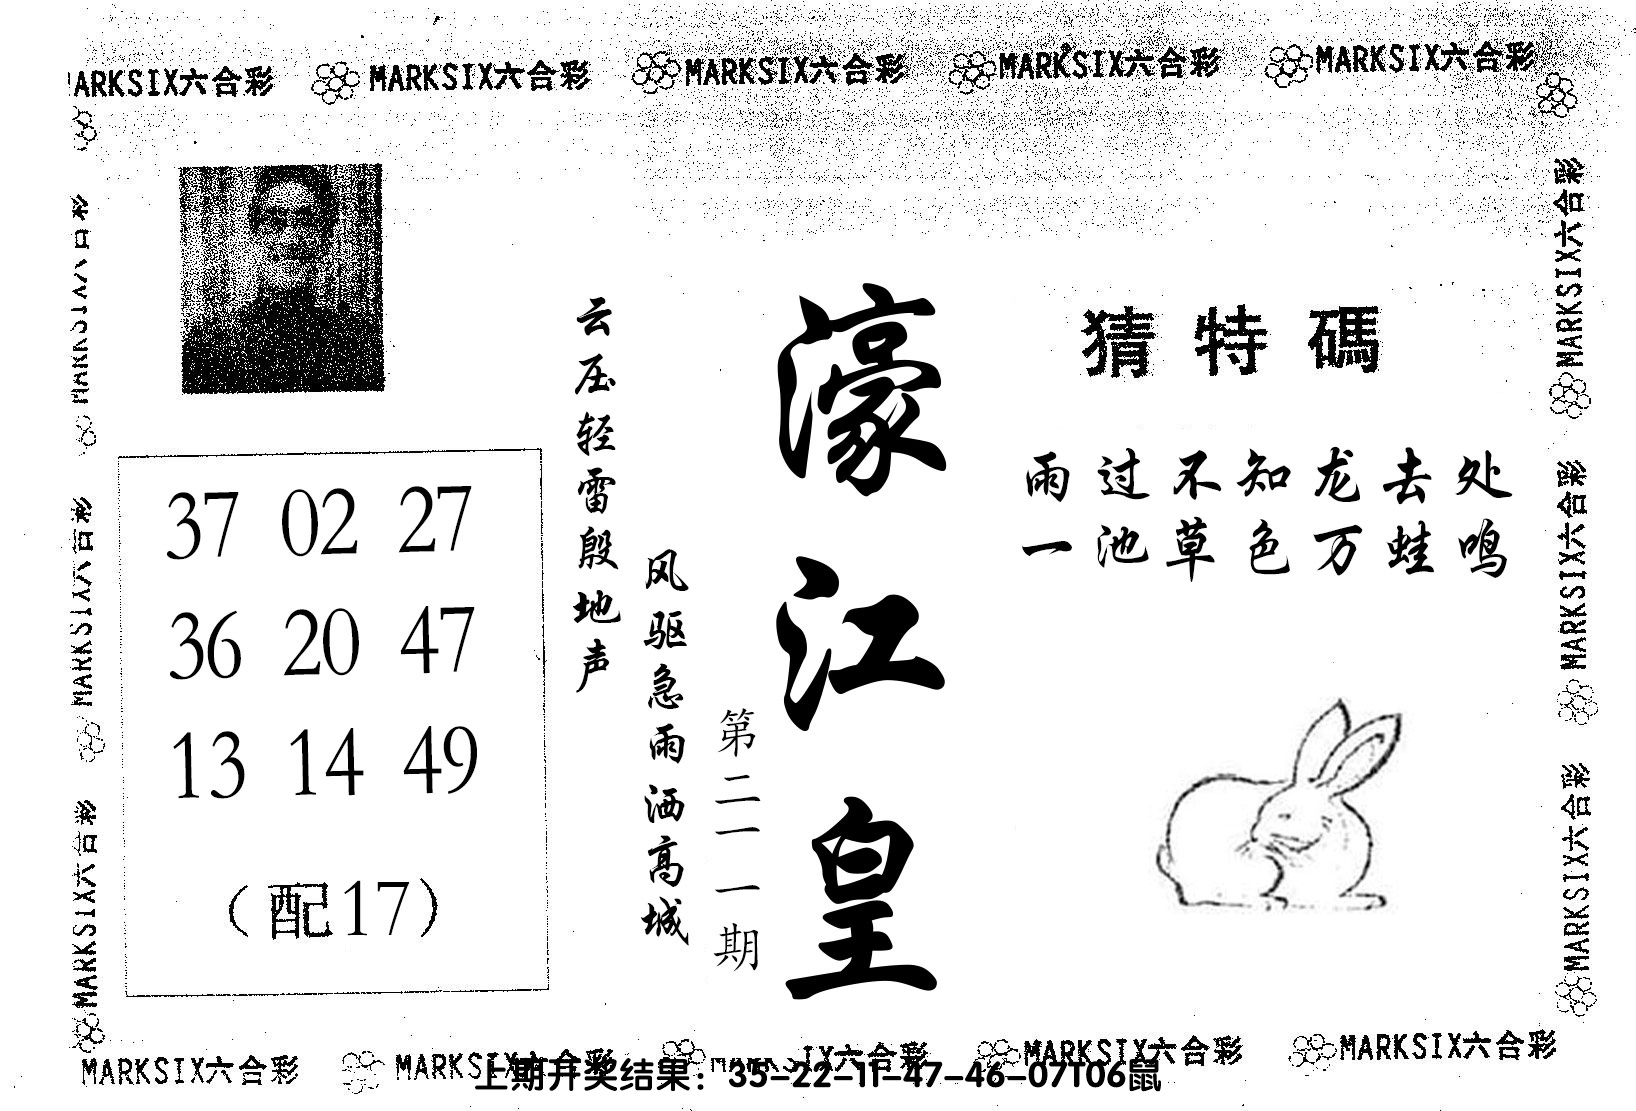 MARKSIX六合彩 MARKSIX六合彩 MARKSIX六合彩 MARKSIX六合彩 MARKSIX六合彩
MARKSIX六合彩
MARKSIX六合彩
MARKSIX六合彩
37 02 27
36 20 47
13 14 49
（配17）
云压轻雷殷地声
风驱急雨洒高城
第二一一期
濠江皇
猜特碼
雨过不知龙去处
一池草色万蛙鸣
MARKSIX六合彩
MARKSIX六合彩
MARKSIX六合彩
MARKSIX六合彩 MARKSIX六合彩 MARKSIX六合彩 MARKSIX六合彩 MARKSIX六合彩
上期开奖结果：35-22-11-47-46-07T06鼠